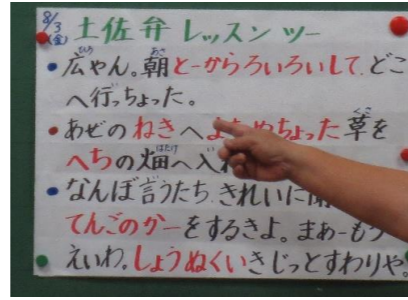 8/3 (金) 土佐弁 レッスン ツー
広やん。朝とーからろいろいして、どこ
へ行っちょった。
あぜの ねきへ ちょった 草を
へちの畑へ入
なんぼ言うたち、きれいに
てんごのかーをするきよ。まあーもう
えいわ。しょうぬくいきじっとすわりや。